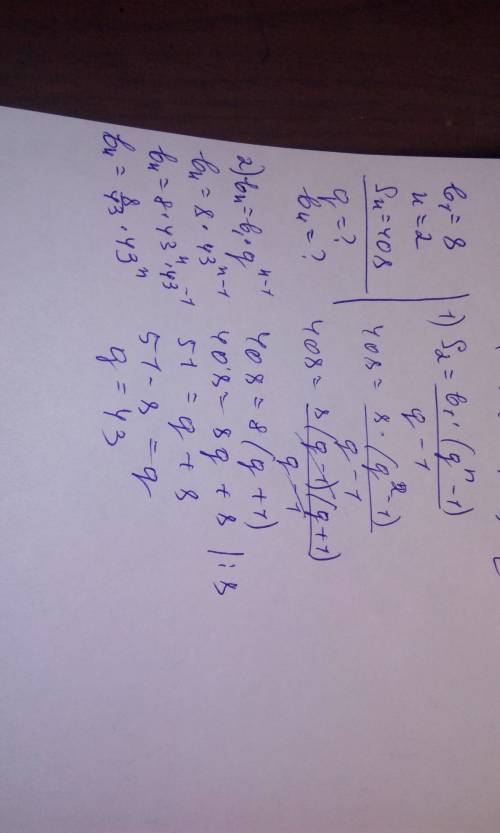 b₁ = 8
n = 2
Sₙ = 408
q = ?
bₙ = ?
1) S₂ = b₁·(qⁿ-1) / q-1
408 = 8·(q²-1) / q-1
408 = 8(q-1)(q+1) / q-1
408 = 8(q+1)
408 = 8q + 8 |:8
51 = q + 8
51 - 8 = q
q = 43
2) bₙ = b₁·qⁿ⁻¹
bₙ = 8·43ⁿ⁻¹
bₙ = 8·43ⁿ·43⁻¹
bₙ = 8/43 · 43ⁿ